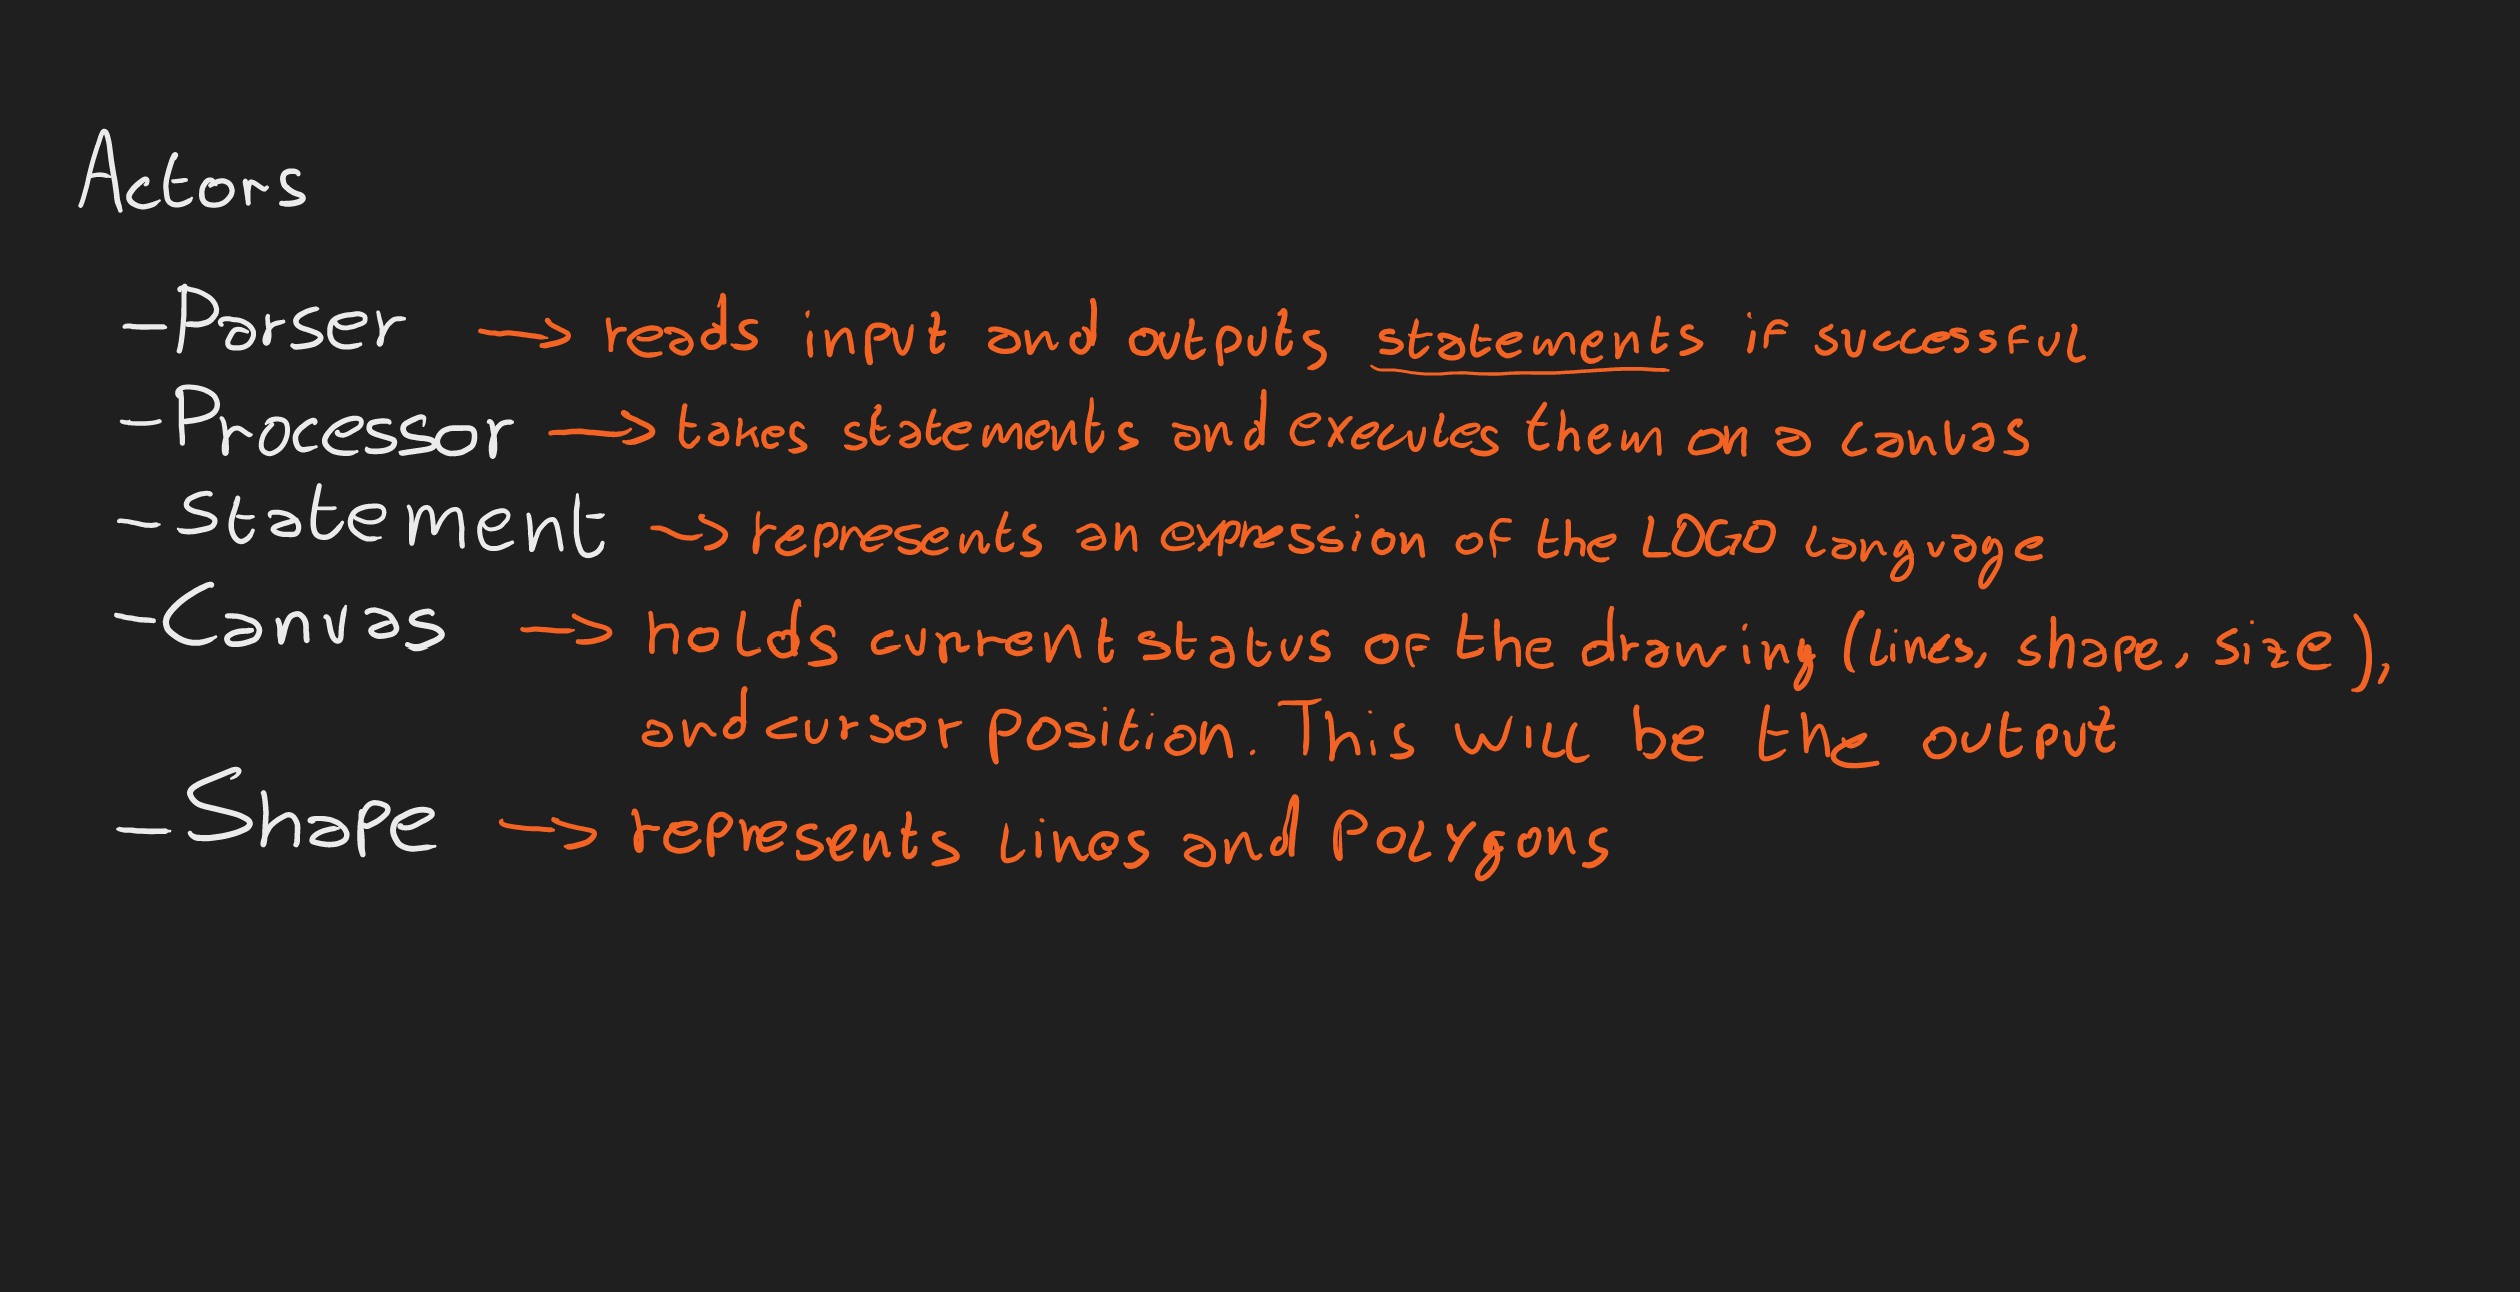 Actors
-Parser -> reads input and outputs statements if successful
-Processor -> takes statements and executes them on a canvas
-Statement -> represents an expression of the LOGO language
-Canvas -> holds current status of the drawing (lines, shape, size),
and cursor position. This will be the output
-Shape -> represents lines and Polygons